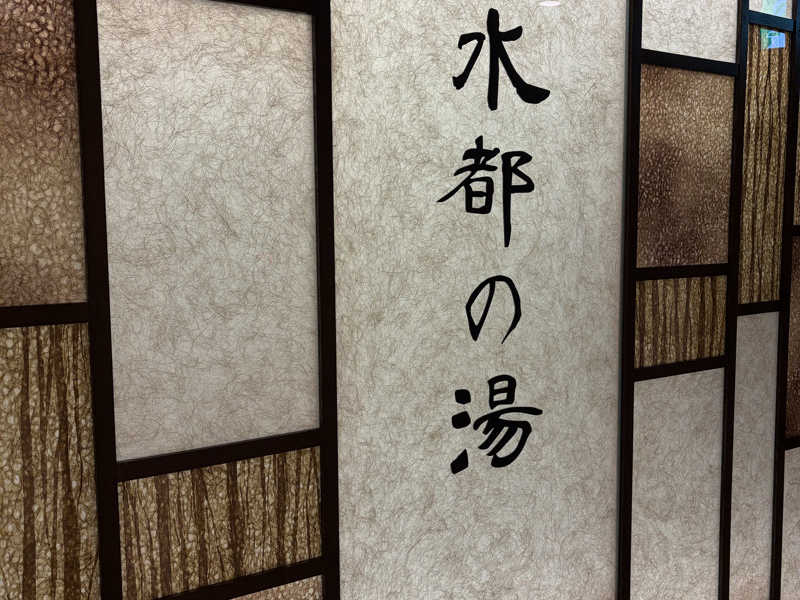 水都の湯